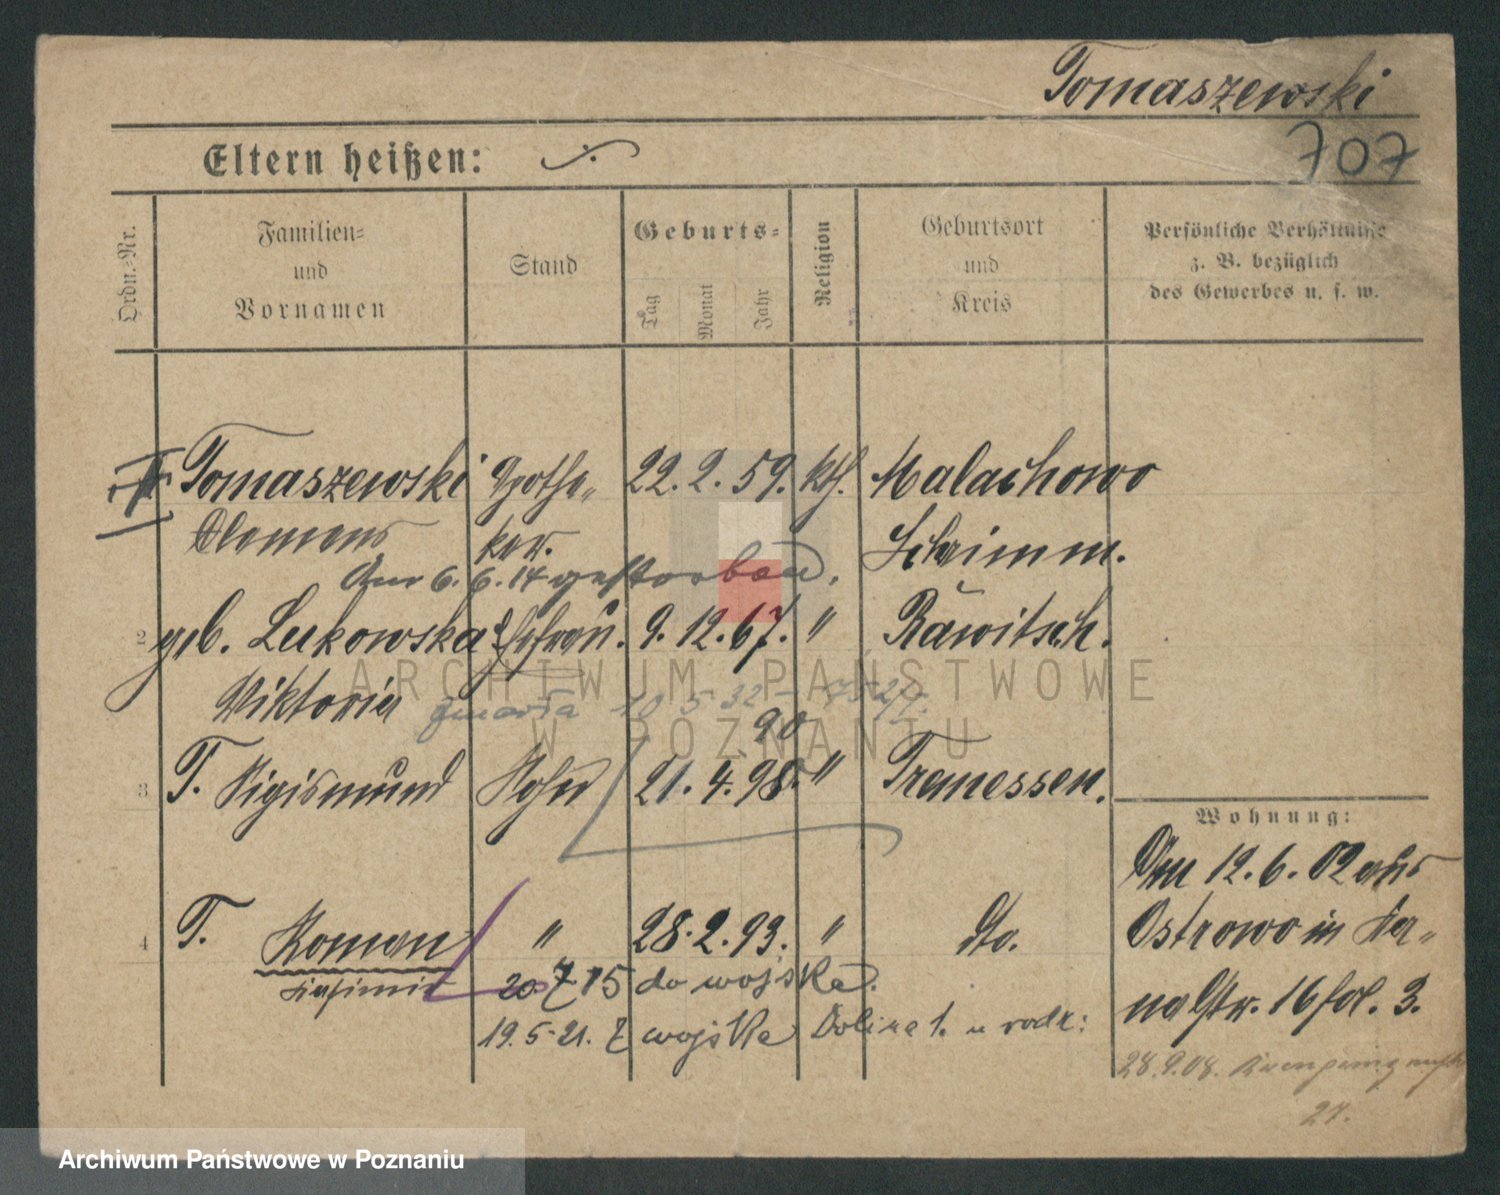 Tomaszewski
707
Eltern heißen: ./.
Ordn.-Nr.
Familien-
und
Vornamen
Stand
Geburts-
Tag
Monat
Jahr
Religion
Geburtsort
und
Kreis
Persönliche Verhältnisse
z. B. bezüglich
des Gewerbes u. s. w.
Tomaszewski Apothe- 22. 2. 59. kth. Malachowo
Clemens ker. Schrimm.
Am 6. 6. 14 gestorben.
2 geb. Lukowska Ehefrau. 9. 12. 67. " Rawitsch.
Viktoria zmarła 10 5 32
90
3 T. Sigismund Sohn 21. 4. 98. " Tremessen.
Wohnung:
Am 12. 6. 02 aus
4 T. Roman " 28. 2. 93. " dto.
Ostrowo in
Kasimir 20. 7 15 do wojska.
Str. 16 fol. 3.
19. 5. 21. z wojska u rodz:
28. 9. 08.
27.
ARCHIWUM PAŃSTWOWE
W POZNANIU
Archiwum Państwowe w Poznaniu